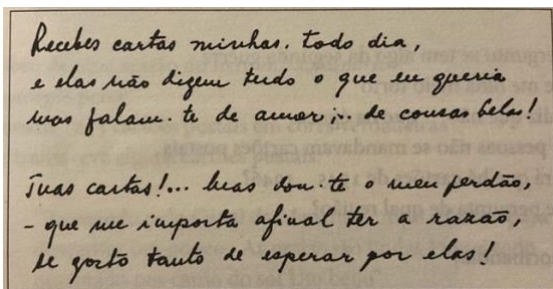 Recebes cartas minhas. todo dia,
e elas não dizem tudo o que eu queria
mas falam-te de amor;.. de cousas belas!
Tuas cartas!... mas dou-te o meu perdão,
- que me importa afinal ter a razão,
se gosto tanto de esperar por elas!